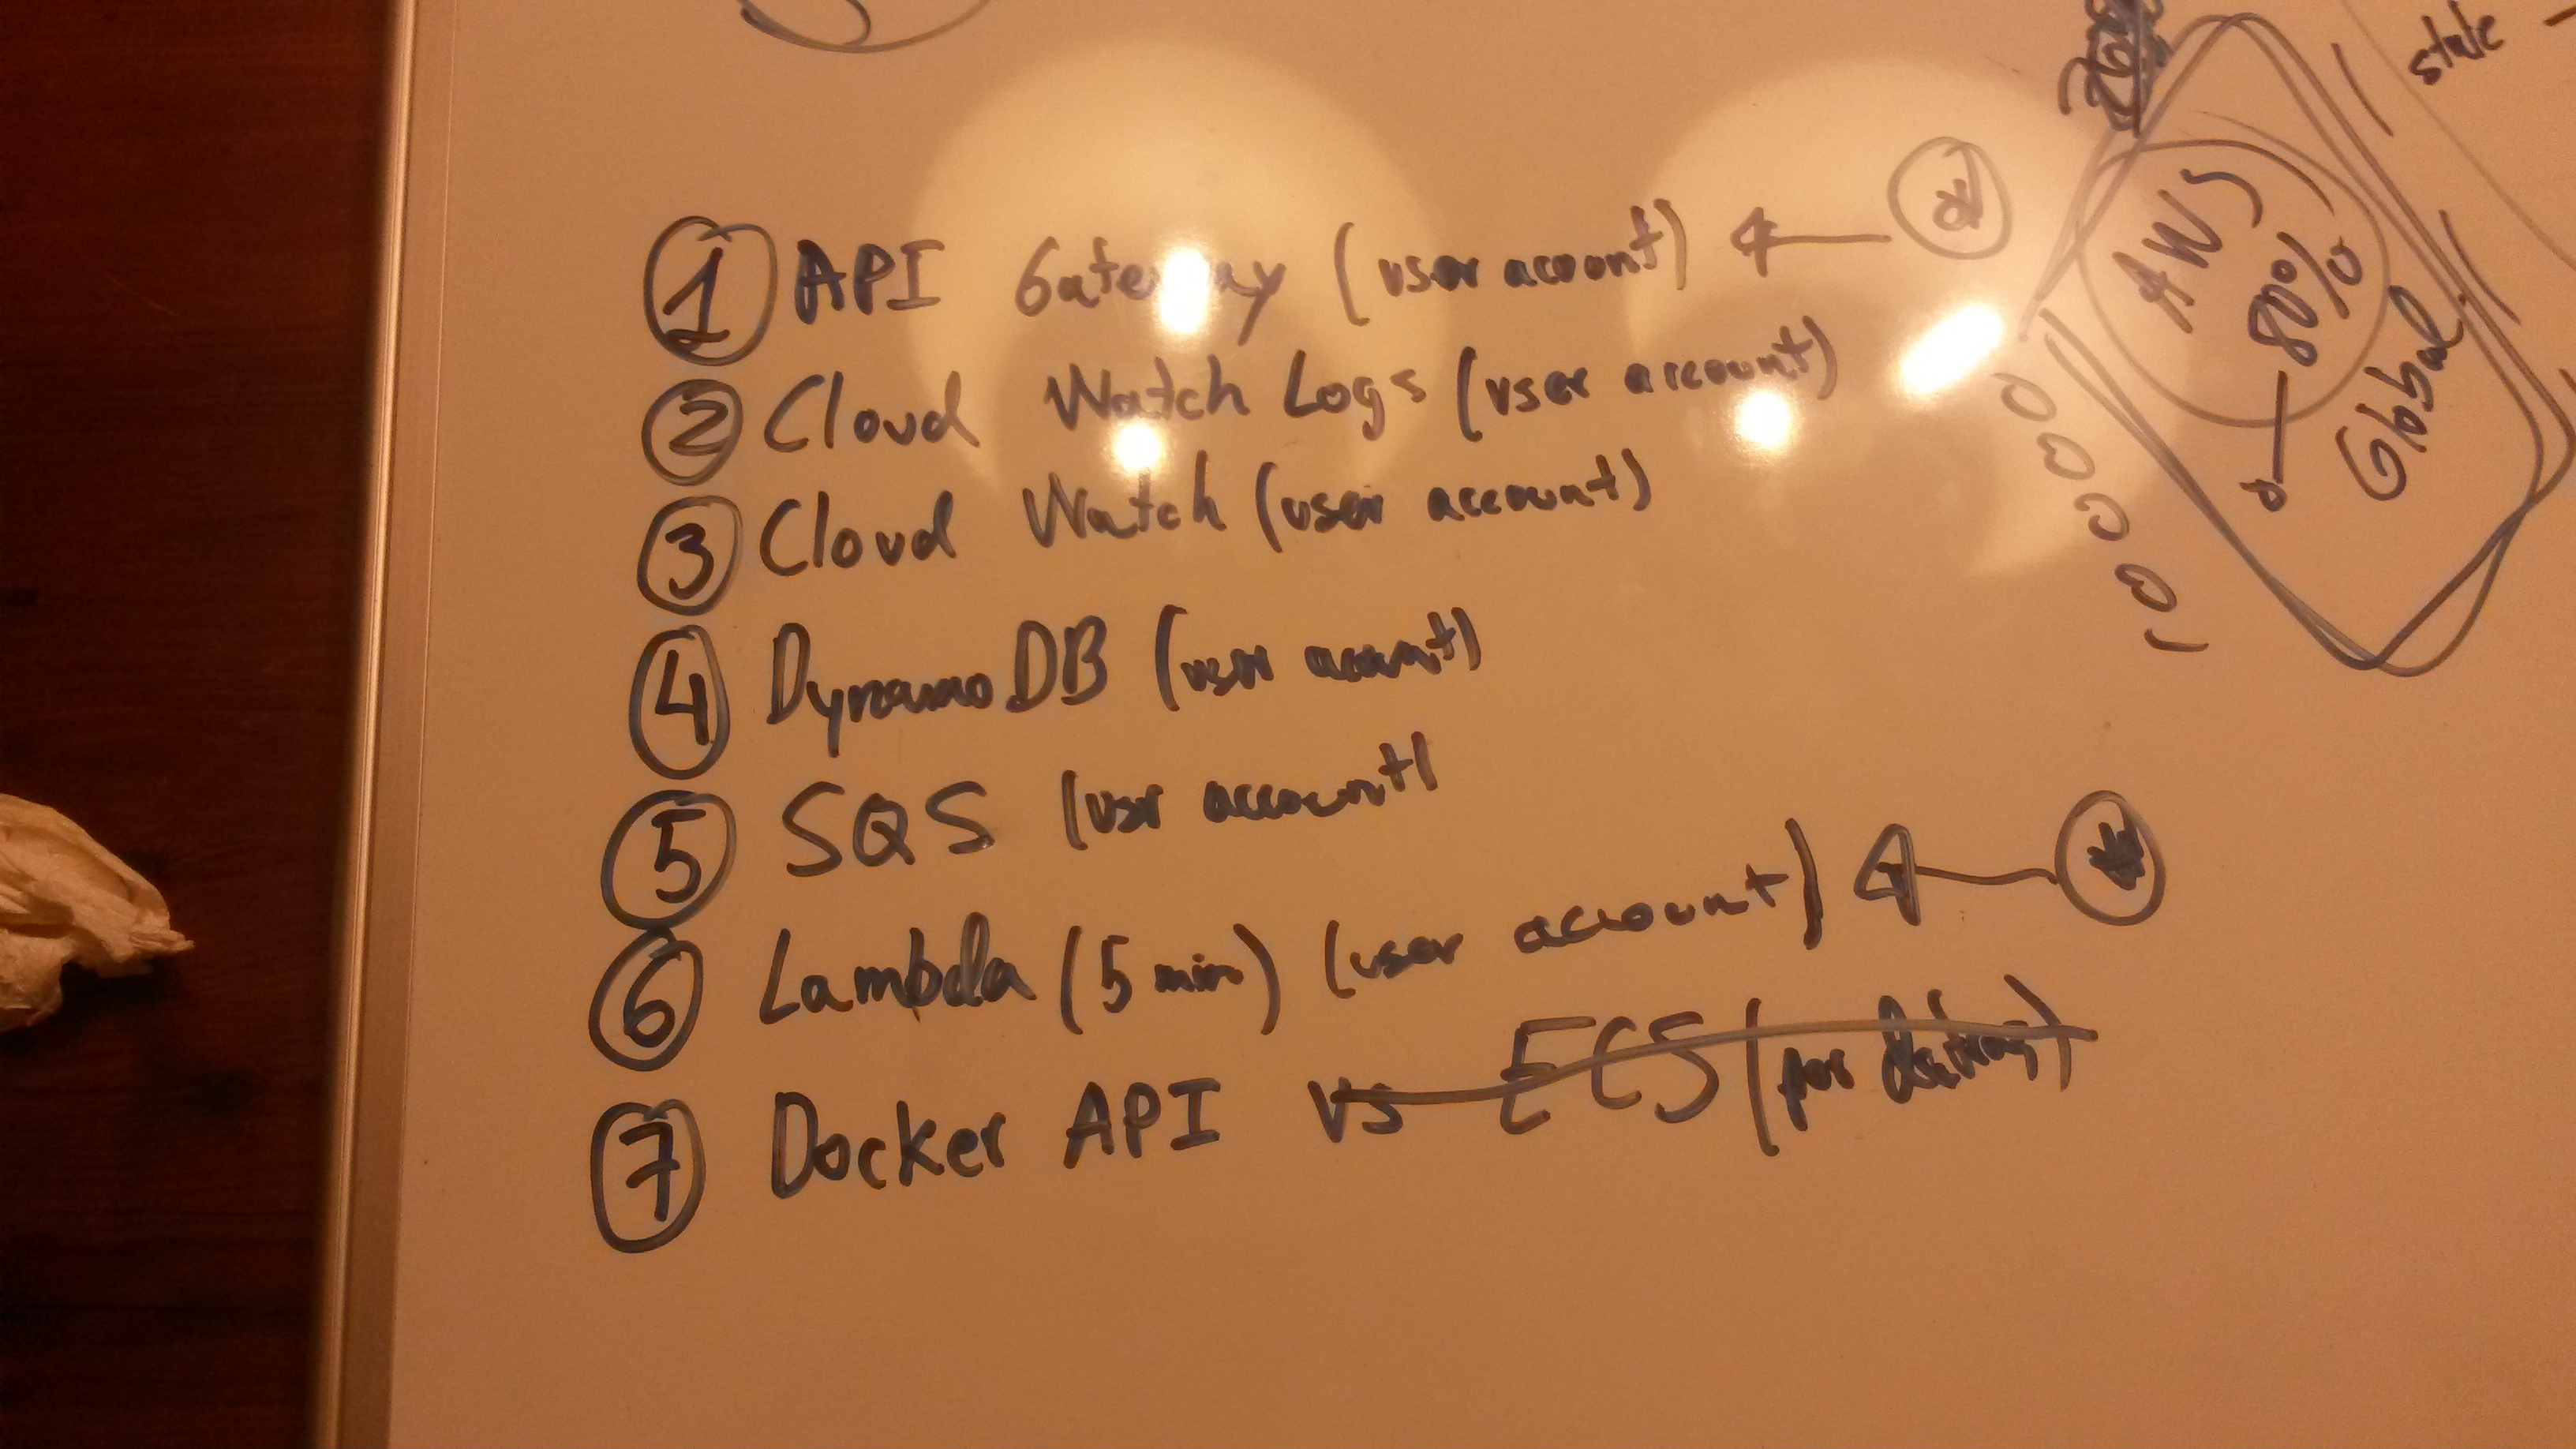 1 API Gateway (user acount)
2 Cloud Watch Logs (user account)
3 Cloud Watch (user account)
4 DynamoDB (user acount)
5 SQS (user account)
6 Lambda (5 min) (user account)
7 Docker API vs ECS (per
state
AWS
80%
Global